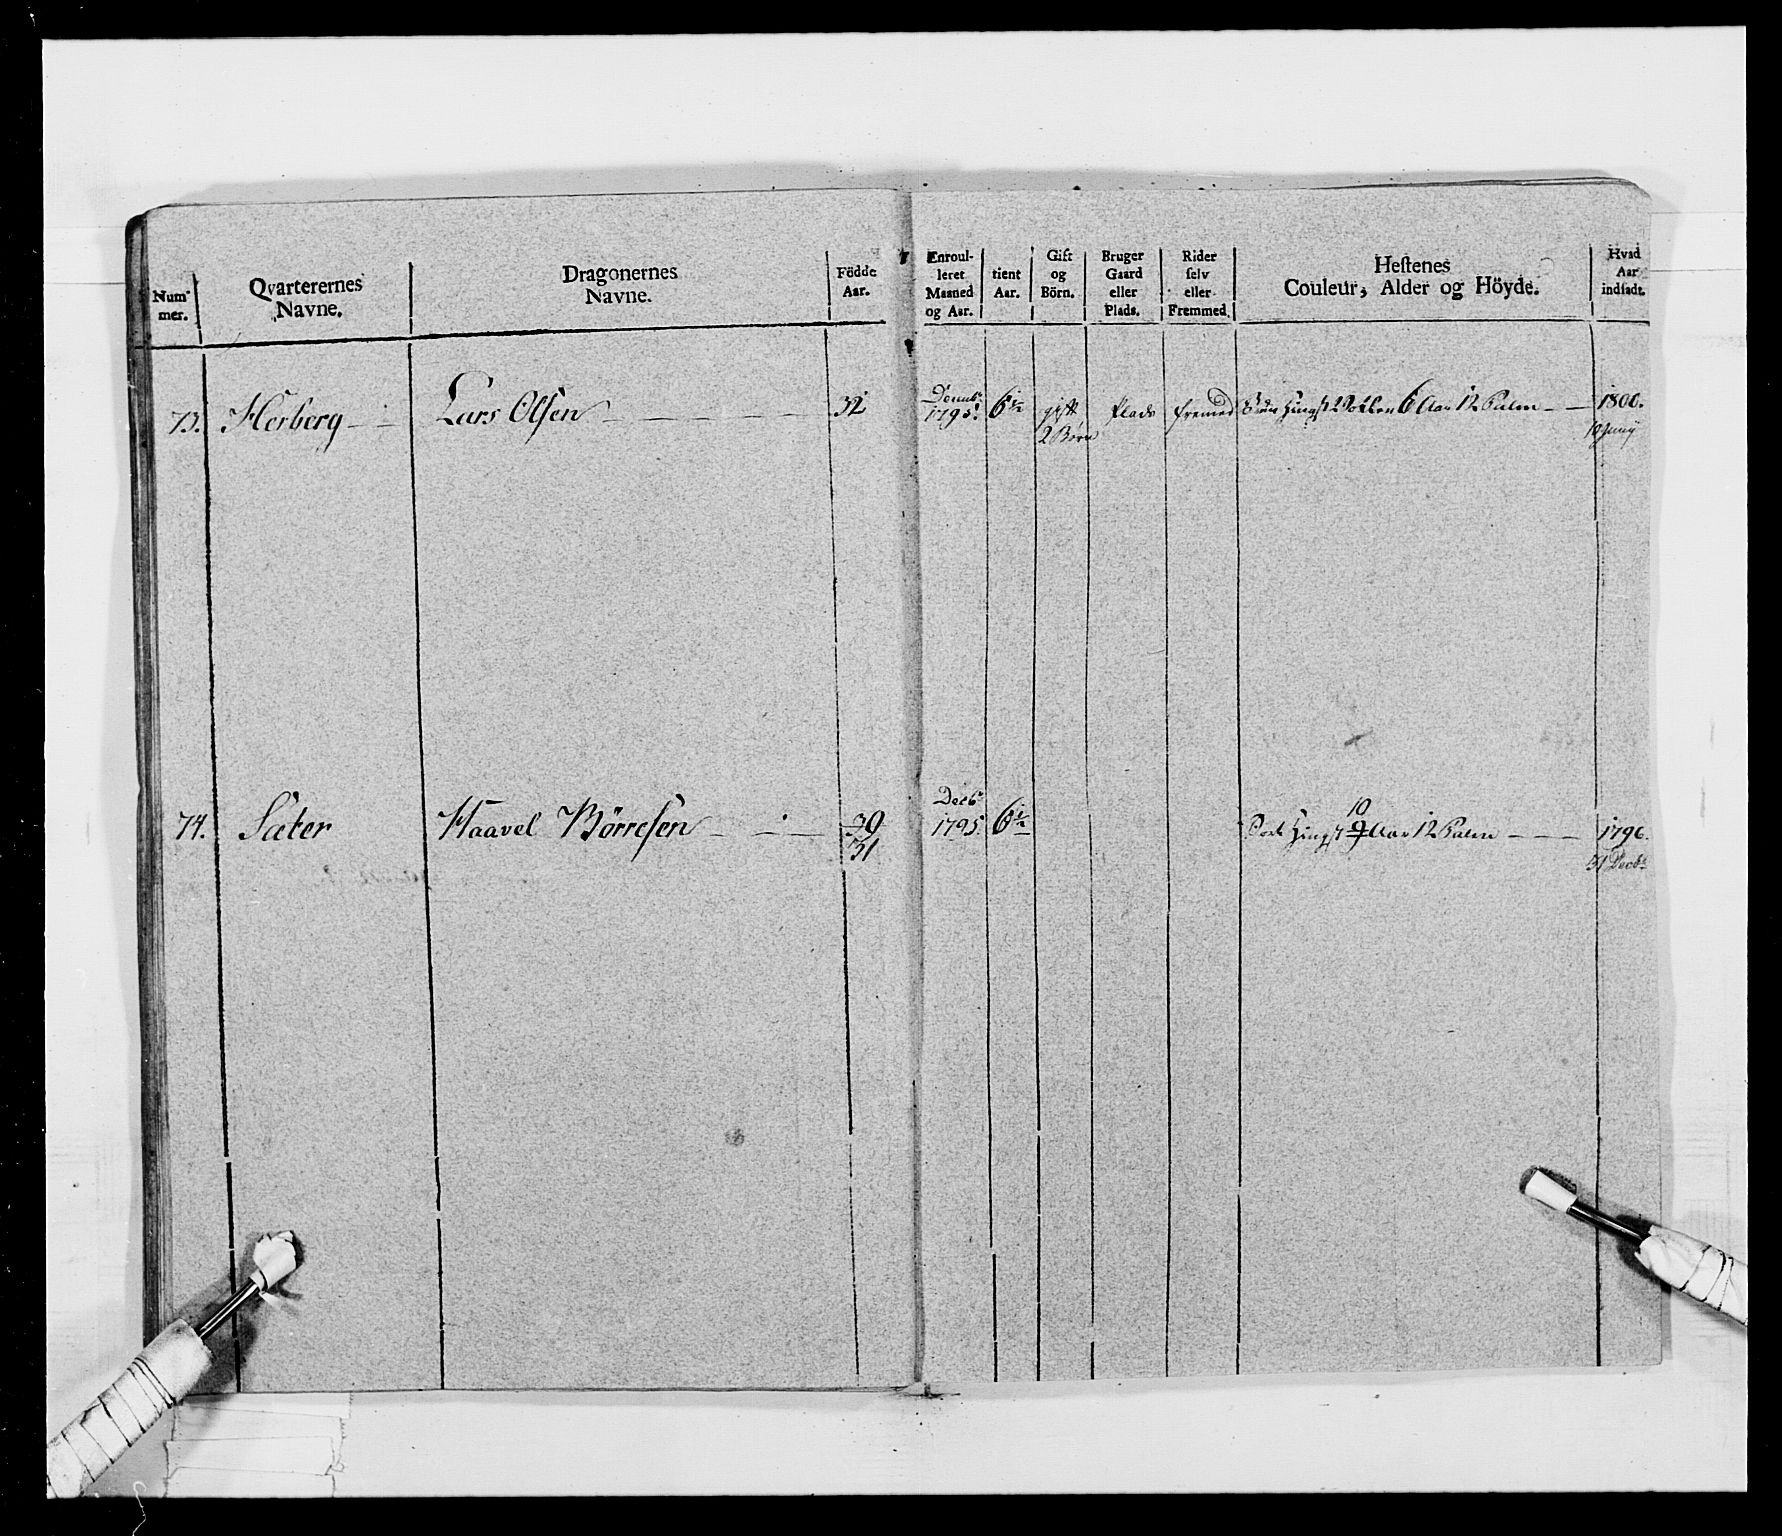 Num-
mer.
Qvarterernes
Navne.
Dragonernes
Navne.
Födde
Aar.
Enroul-
leret
Maaned
og Aar.
tient
Aar.
Gift
og
Börn.
Bruger
Gaard
eller
Plads.
Rider
selv
eller
Fremmed.
Hestenes
Couleur, Alder og Höyde.
Hvad
Aar
indsadt.
73. Herberg Lars Olsen 32 1795. 6½ gift Plads fremed Hingst 6 Aar 12 Palm 1800.
2 Børn 18 Juny
74. Sæter Haavel Börresen 30 Decbr 1795. 6½ Hingst 9 Aar 12 Palm 1796.
31 10 31 Decbr